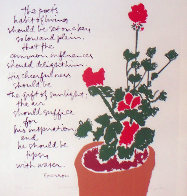 The poets
habit of living
should be set on a key
so low and plain,
that the
common influences
should delight him.
His cheerfulness
should be
the gift of sunlight;
the air
should suffice
for
his inspiration
and
he should be
tipsy
with water.
Emerson